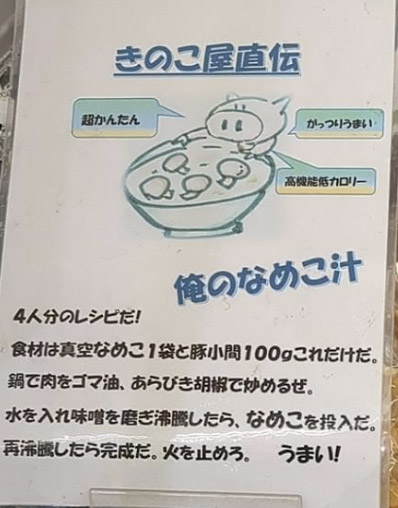 きのこ屋直伝
超かんたん
がっつりうまい
高機能低カロリー
俺のなめこ汁
4人分のレシピだ!
食材は真空なめこ1袋と豚小間100gこれだけだ。
鍋で肉をゴマ油、あらびき胡椒で炒めるぜ。
水を入れ味噌を磨ぎ沸騰したら、なめこを投入だ。
再沸騰したら完成だ。火を止めろ。 うまい!